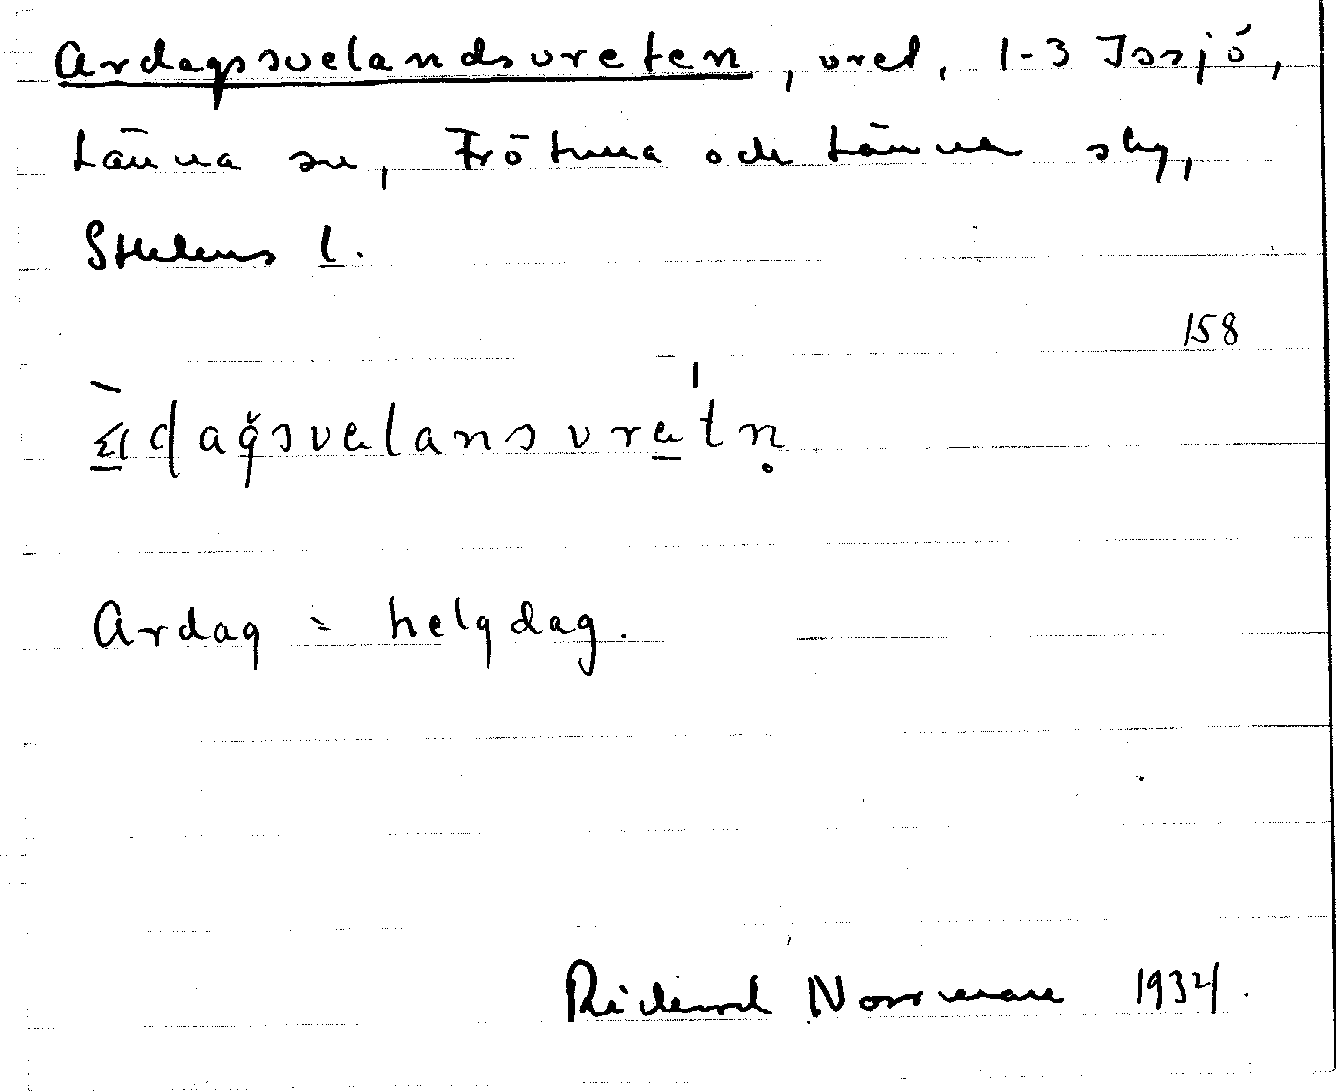 Ardagsvelandsvreten, vret, 1-3 Issjö,
Länna sn, Frötuna och Länna slg,
Sthlms l.
158
dağsvelansvretn̥
Ardag = helgdag.
Rickard Norrman 1934.